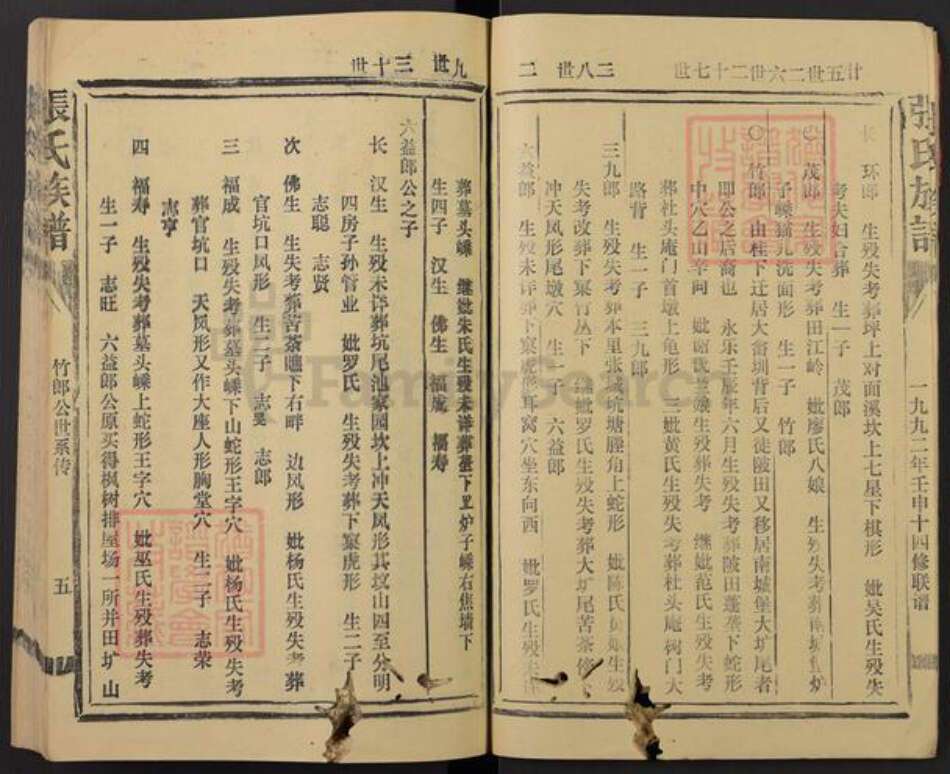 張氏族譜
一九九二年壬申十四修联谱
廿五世二六世二十七世
三八世二
长 环郎 生殁失考葬坪上对面溪坎上七星下棋形 妣吴氏生殁失
考夫妇合葬 生一子 茂郎
茂郎 生殁失考葬田江岭 妣廖氏八娘 生殁失考葬南坑 炉
子嵊 洗面形 生一子 竹郎
竹郎 由桂下迁居大畲圳背后又徒陂田又移居南墟堡大圹尾者
即公之后裔也 永乐壬辰年六月生殁失考葬陂田蓬垄下蛇形
中穴乙山辛向 妣 娘生殁葬失考 继妣范氏生殁失考
葬社头庵门首墩上龟形 三妣黄氏生殁失考葬杜头庵树门大
路背 生一子 三九郎
三九郎 生殁失考葬本里张城坑塘塍角上蛇形 妣陈氏 娘生殁
失考改葬下窠竹丛下 继妣罗氏生殁失考葬大圹尾苦茶
冲天凤形尾墩穴 生一子 六益郎
六益郎 生殁未详葬下窠虎形耳窝穴坐东向西 妣罗氏生殁未详
九世 三十世
葬墓头嵊 继妣朱氏生殁未详葬 下 炉子嵊右焦墙下
生四子 汉生 佛生 福成 福寿
六益郎公之子
长 汉生 生殁未详葬坑尾池家园坎上冲天凤形其坟山四至分明
四房子孙管业 妣罗氏 生殁失考葬下窠虎形 生二子
志聪 志贤
次 佛生 生失考葬苦茶 下右畔 边凤形 妣杨氏生殁失考葬
官坑口凤形 生二子 志旻 志郎
三 福成 生殁失考葬墓头嵊下山蛇形王字穴 妣杨氏生殁失考
葬官坑口 天凤形又作大座人形胸堂穴 生二子 志荣
志亨
四 福寿 生殁失考葬墓头嵊上蛇形王字穴 妣巫氏生殁葬失考
生一子 志旺 六益郎公原买得枫树排屋场一所并田圹山
張氏族譜
竹郎公世系传
五
FamilySearch